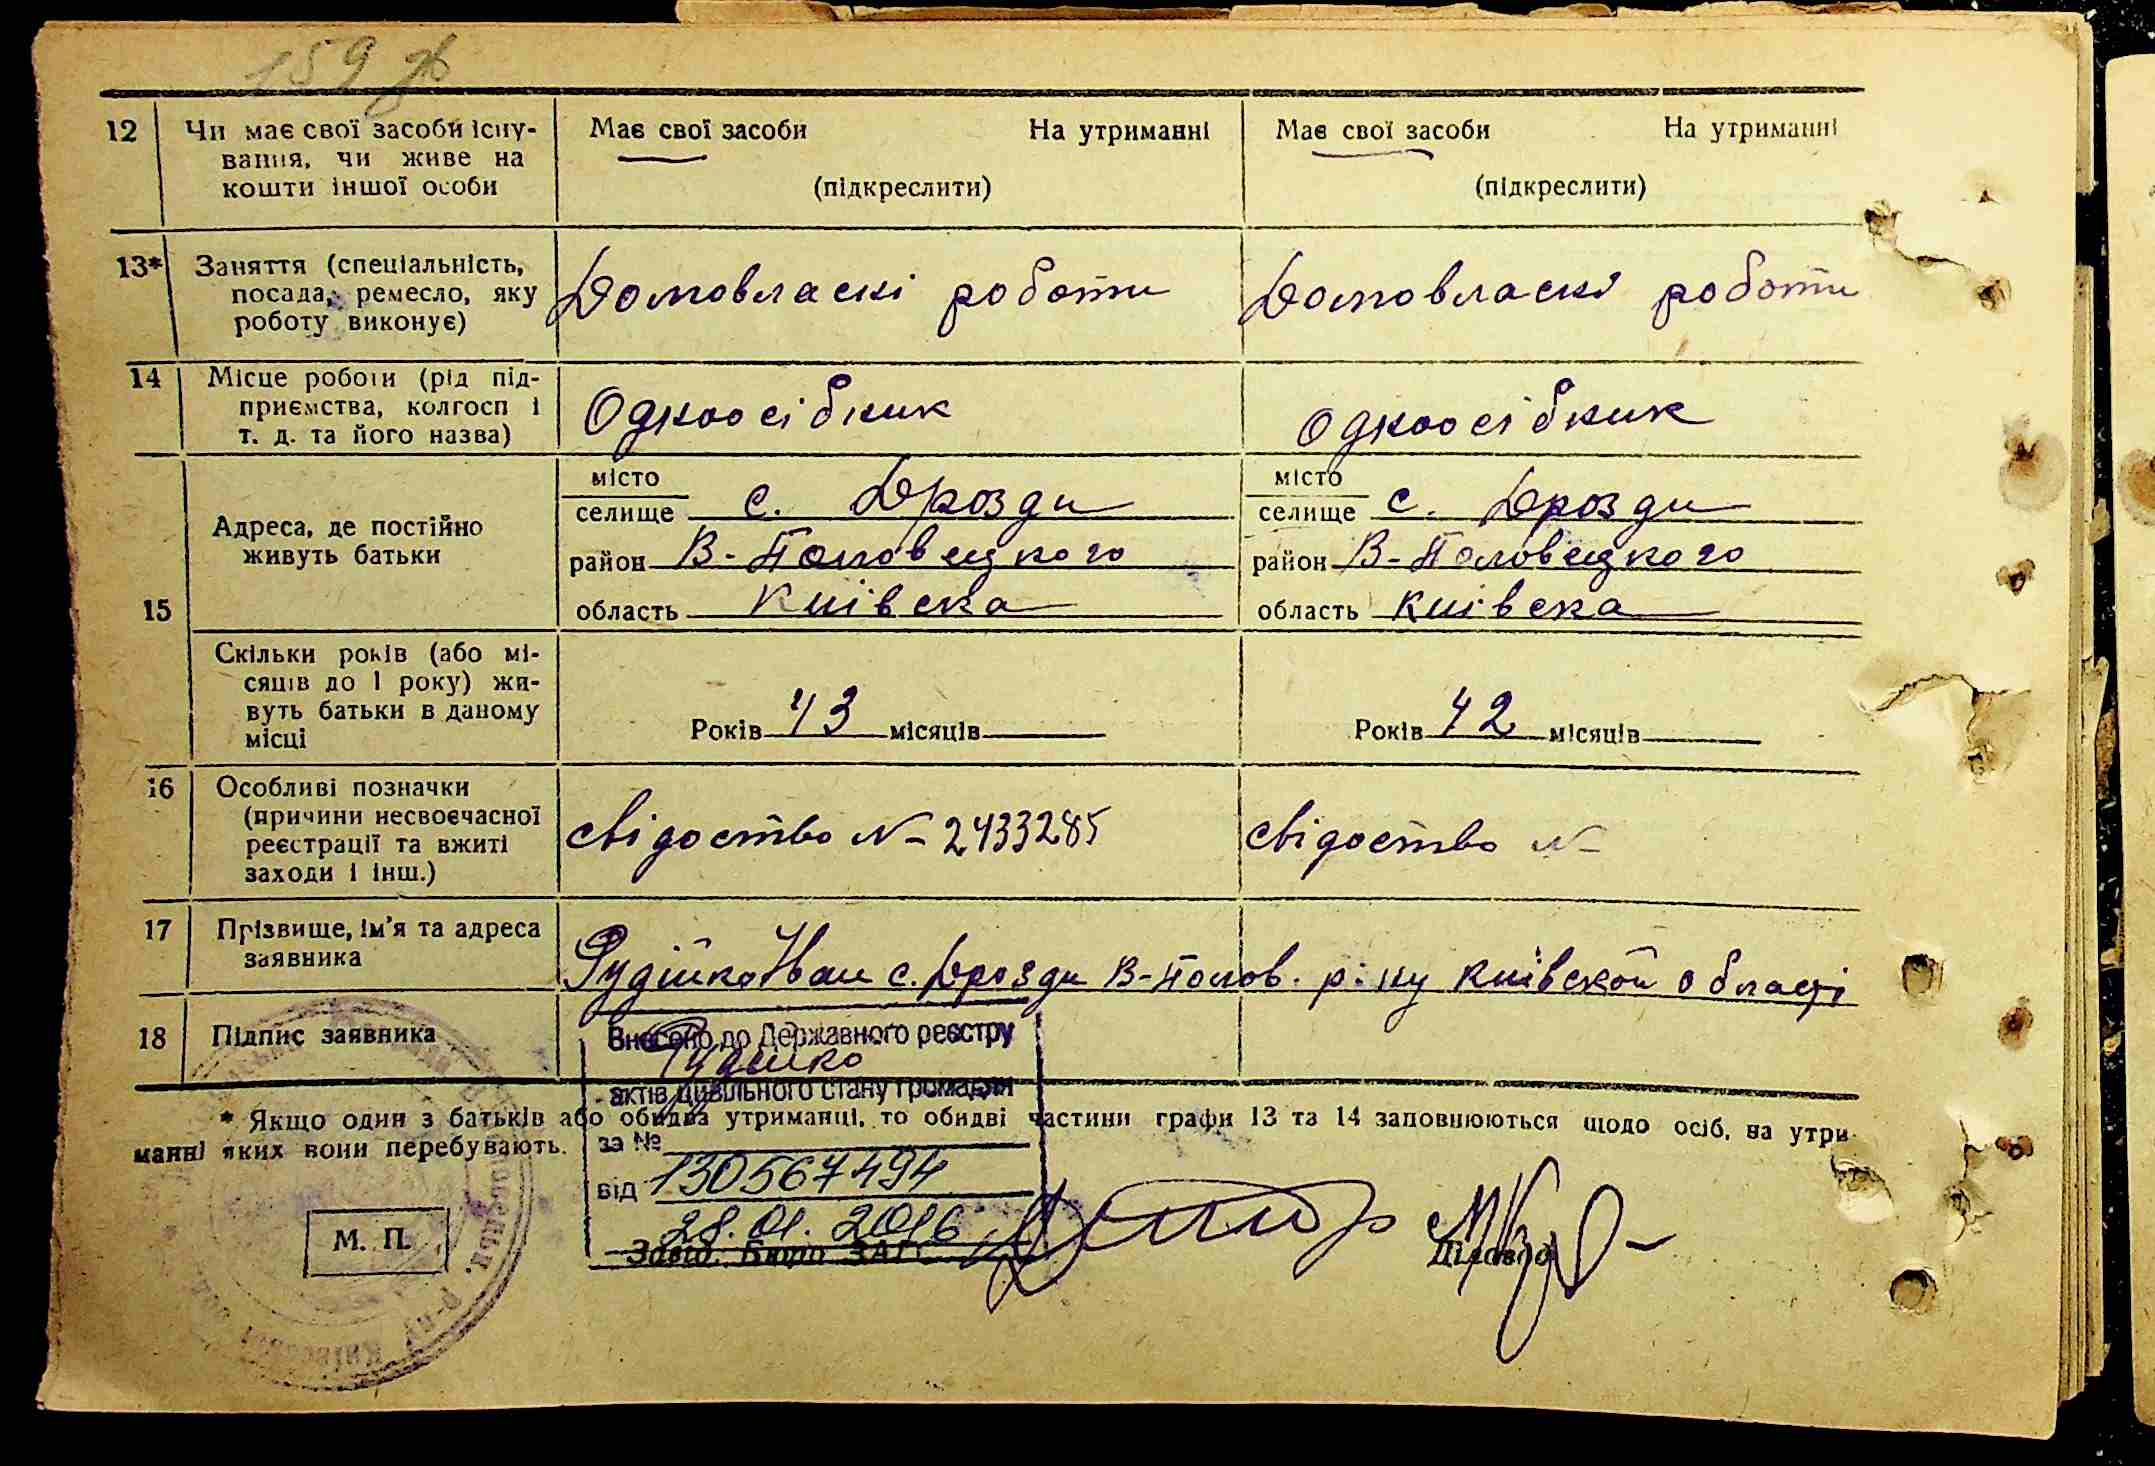 159 зв
12 Чи має свої засоби існу- Має свої засоби На утриманні Має свої засоби На утриманні
вання, чи живе на
кошти іншої особи (підкреслити) (підкреслити)
13* Заняття (спеціальність,
посада, ремесло, яку Домовласкі роботи Домовласкі роботи
роботу виконує)
14 Місце роботи (рід під-
приємства, колгосп і Одноосібник Одноосібник
т. д. та його назва)
місто місто
15 Адреса, де постійно селище с. Дрозди селище с. Дрозди
живуть батьки район В-Половецкого район В-Половецкого
область Київска область Київска
Скільки років (або мі-
сяців до 1 року) жи-
вуть батьки в даному Років 43 місяців Років 42 місяців
місці
16 Особливі позначки
(причини несвоєчасної свідоство № 2433285 свідоство №
реєстрації та вжиті
заходи і інш.)
17 Прізвище, ім'я та адреса
заявника Рудійко Іван с. Дрозди В-Полов. р-ну Київской області
18 Підпис заявника
Внесено до Державного реєстру
актів цивільного стану громадян
* Якщо один з батьків або обидва утриманці, то обидві частини графи 13 та 14 заповнюються щодо осіб, на утри-
манні яких вони перебувають.
за №
від 130567494
28.01.2016
М. П.
Завід. Бюро ЗАГС Діловод